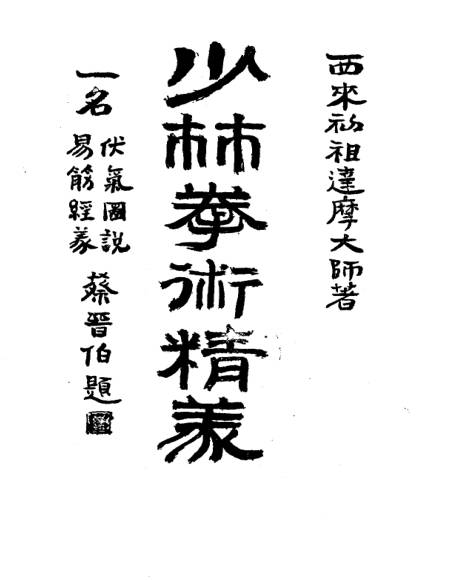 西來初祖達摩大師著
少林拳術精義
一名
伏氣圖說
易筋經義
蔡晉伯題